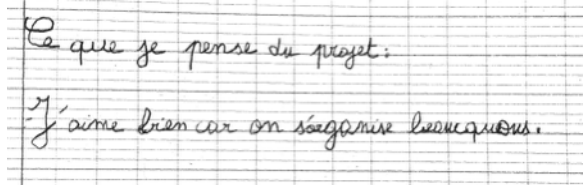 Ce que je pense du projet :
- J'aime bien car on s'organise beaucquous.